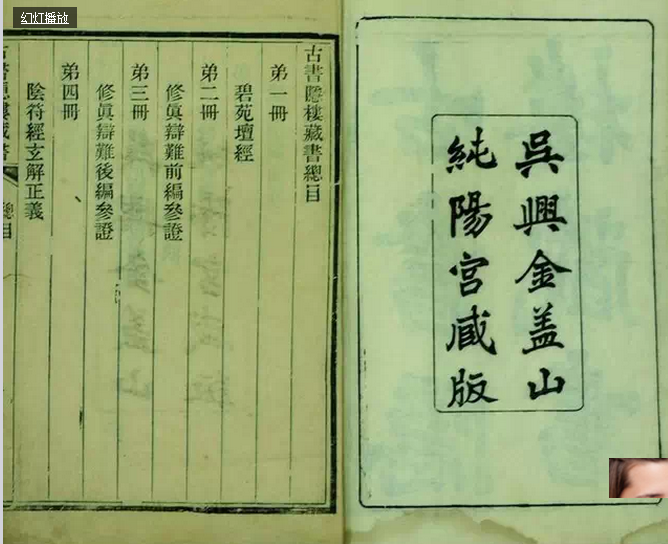 幻灯播放
吳興金盖山
純陽宮藏版
古書隱樓藏書總目
第一冊
碧苑壇經
第二冊
修眞辯難前編參證
第三冊
修眞辯難後編參證
第四冊
陰符經玄解正義
古書隱樓藏書
總目